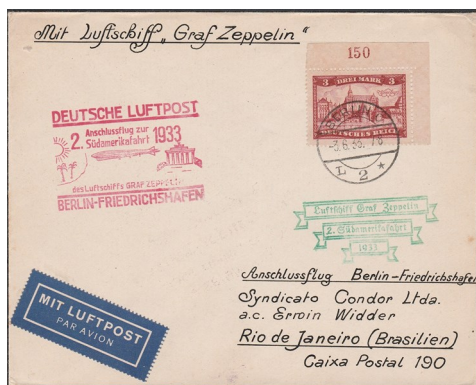 Mit Luftschiff „Graf Zeppelin"
150
3 DREI MARK 3
DEUTSCHES REICH
BERLIN C
-3.6.33. 7-8
L 2 *
DEUTSCHE LUFTPOST
2. Anschlussflug zur
Südamerikafahrt 1933
des Luftschiffs GRAF ZEPPELIN
BERLIN-FRIEDRICHSHAFEN
Luftschiff Graf Zeppelin
2. Südamerikafahrt
1933
MIT LUFTPOST
PAR AVION
Anschlussflug Berlin-Friedrichshafen
Syndicato Condor Ltda.
a.c. Erwin Widder
Rio de Janeiro (Brasilien)
Caixa Postal 190